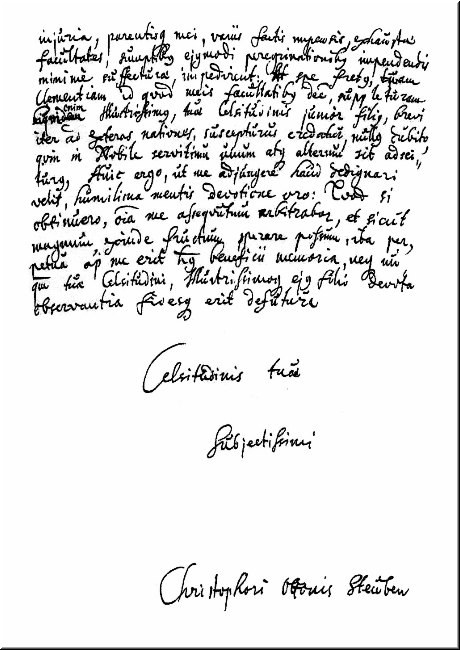 injuria, parentisq mei, variis factis impensis, exhausta
facultates, sumptib ejusmodi peregrinationib impendendis
minime suffectura, impedirent: At spe fretus, tuam
Clementiam id quod meis facultatib dee,
enim Illustrissimus, tuæ Celsitudinis junior filius, brevi
iter ad exteras nationes, suscepturus credatur, nullus dubito
qvin in Nobile servitium unum atq alterum sit adsci
turus, Huic ergo, ut me adjungere haud dedignari
velis, humilima mentis devotione oro: Quod si
obtinuero, oia me assequutum arbitrabor, et sicut
magnum exinde fructum sperare possum, ita per,
petua apud me erit hujus beneficii memoria, neq un
qua tuæ Celsitudini, Illustrissimoq ejus filio devota
observantia fidesq erit defutura
Celsitudinis tuæ
Subjectissimi
Christophori Ottonis Steuben